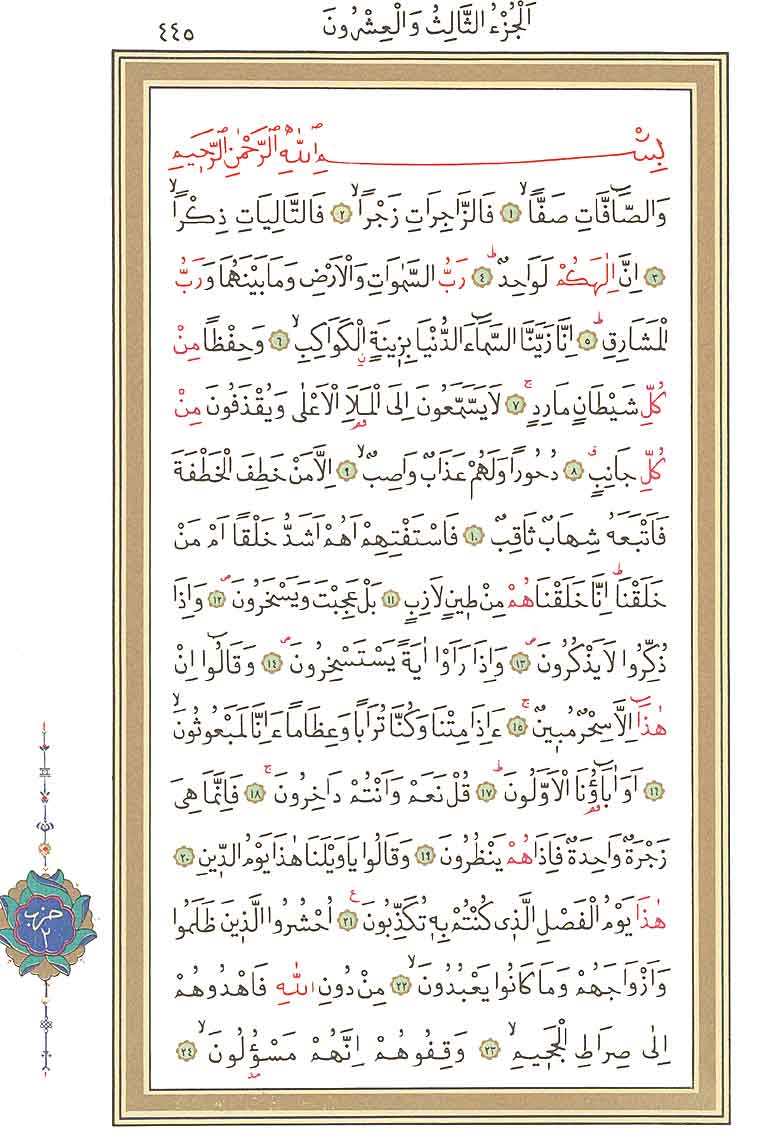 اَلْجُزْءُ الثَّالِثُ وَالْعِشْرُونَ
٤٤٥
بِسْمِ اللّٰهِ الرَّحْمٰنِ الرَّح۪يمِ
وَالصَّٓافَّاتِ صَفًّاۙ ١ فَالزَّاجِرَاتِ زَجْرًاۙ ٢ فَالتَّالِيَاتِ ذِكْرًاۙ
٣ اِنَّ اِلٰهَكُمْ لَوَاحِدٌۜ ٤ رَبُّ السَّمٰوَاتِ وَالْاَرْضِ وَمَا بَيْنَهُمَا وَرَبُّ
الْمَشَارِقِۜ ٥ اِنَّا زَيَّنَّا السَّمَٓاءَ الدُّنْيَا بِز۪ينَةٍ الْكَوَاكِبِۙ ٦ وَحِفْظًا مِنْ
كُلِّ شَيْطَانٍ مَارِدٍۚ ٧ لَا يَسَّمَّعُونَ اِلَى الْمَلَاِ الْاَعْلٰى وَيُقْذَفُونَ مِنْ
كُلِّ جَانِبٍۗ ٨ دُحُورًا وَلَهُمْ عَذَابٌ وَاصِبٌۙ ٩ اِلَّا مَنْ خَطِفَ الْخَطْفَةَ
فَاَتْبَعَهُ شِهَابٌ ثَاقِبٌ ١٠ فَاسْتَفْتِهِمْ اَهُمْ اَشَدُّ خَلْقًا اَمْ مَنْ
خَلَقْنَاۜ اِنَّا خَلَقْنَاهُمْ مِنْ ط۪ينٍ لَازِبٍ ١١ بَلْ عَجِبْتَ وَيَسْخَرُونَۖ ١٢ وَاِذَا
ذُكِّرُوا لَا يَذْكُرُونَۖ ١٣ وَاِذَا رَاَوْا اٰيَةً يَسْتَسْخِرُونَۖ ١٤ وَقَالُٓوا اِنْ
هٰذَٓا اِلَّا سِحْرٌ مُب۪ينٌۚ ١٥ ءَاِذَا مِتْنَا وَكُنَّا تُرَابًا وَعِظَامًا ءَاِنَّا لَمَبْعُوثُونَۙ
١٦ اَوَاٰبَٓاؤُ۬نَا الْاَوَّلُونَۜ ١٧ قُلْ نَعَمْ وَاَنْتُمْ دَاخِرُونَۚ ١٨ فَاِنَّمَا هِيَ
زَجْرَةٌ وَاحِدَةٌ فَاِذَا هُمْ يَنْظُرُونَ ١٩ وَقَالُوا يَا وَيْلَنَا هٰذَا يَوْمُ الدّ۪ينِ ٢٠
هٰذَا يَوْمُ الْفَصْلِ الَّذ۪ي كُنْتُمْ بِه۪ تُكَذِّبُونَ۟ ٢١ اُحْشُرُوا الَّذ۪ينَ ظَلَمُوا
وَاَزْوَاجَهُمْ وَمَا كَانُوا يَعْبُدُونَۙ ٢٢ مِنْ دُونِ اللّٰهِ فَاهْدُوهُمْ
اِلٰى صِرَاطِ الْجَح۪يمِۙ ٢٣ وَقِفُوهُمْ اِنَّهُمْ مَسْؤُ۫لُونَۙ ٢٤
حزب
٢